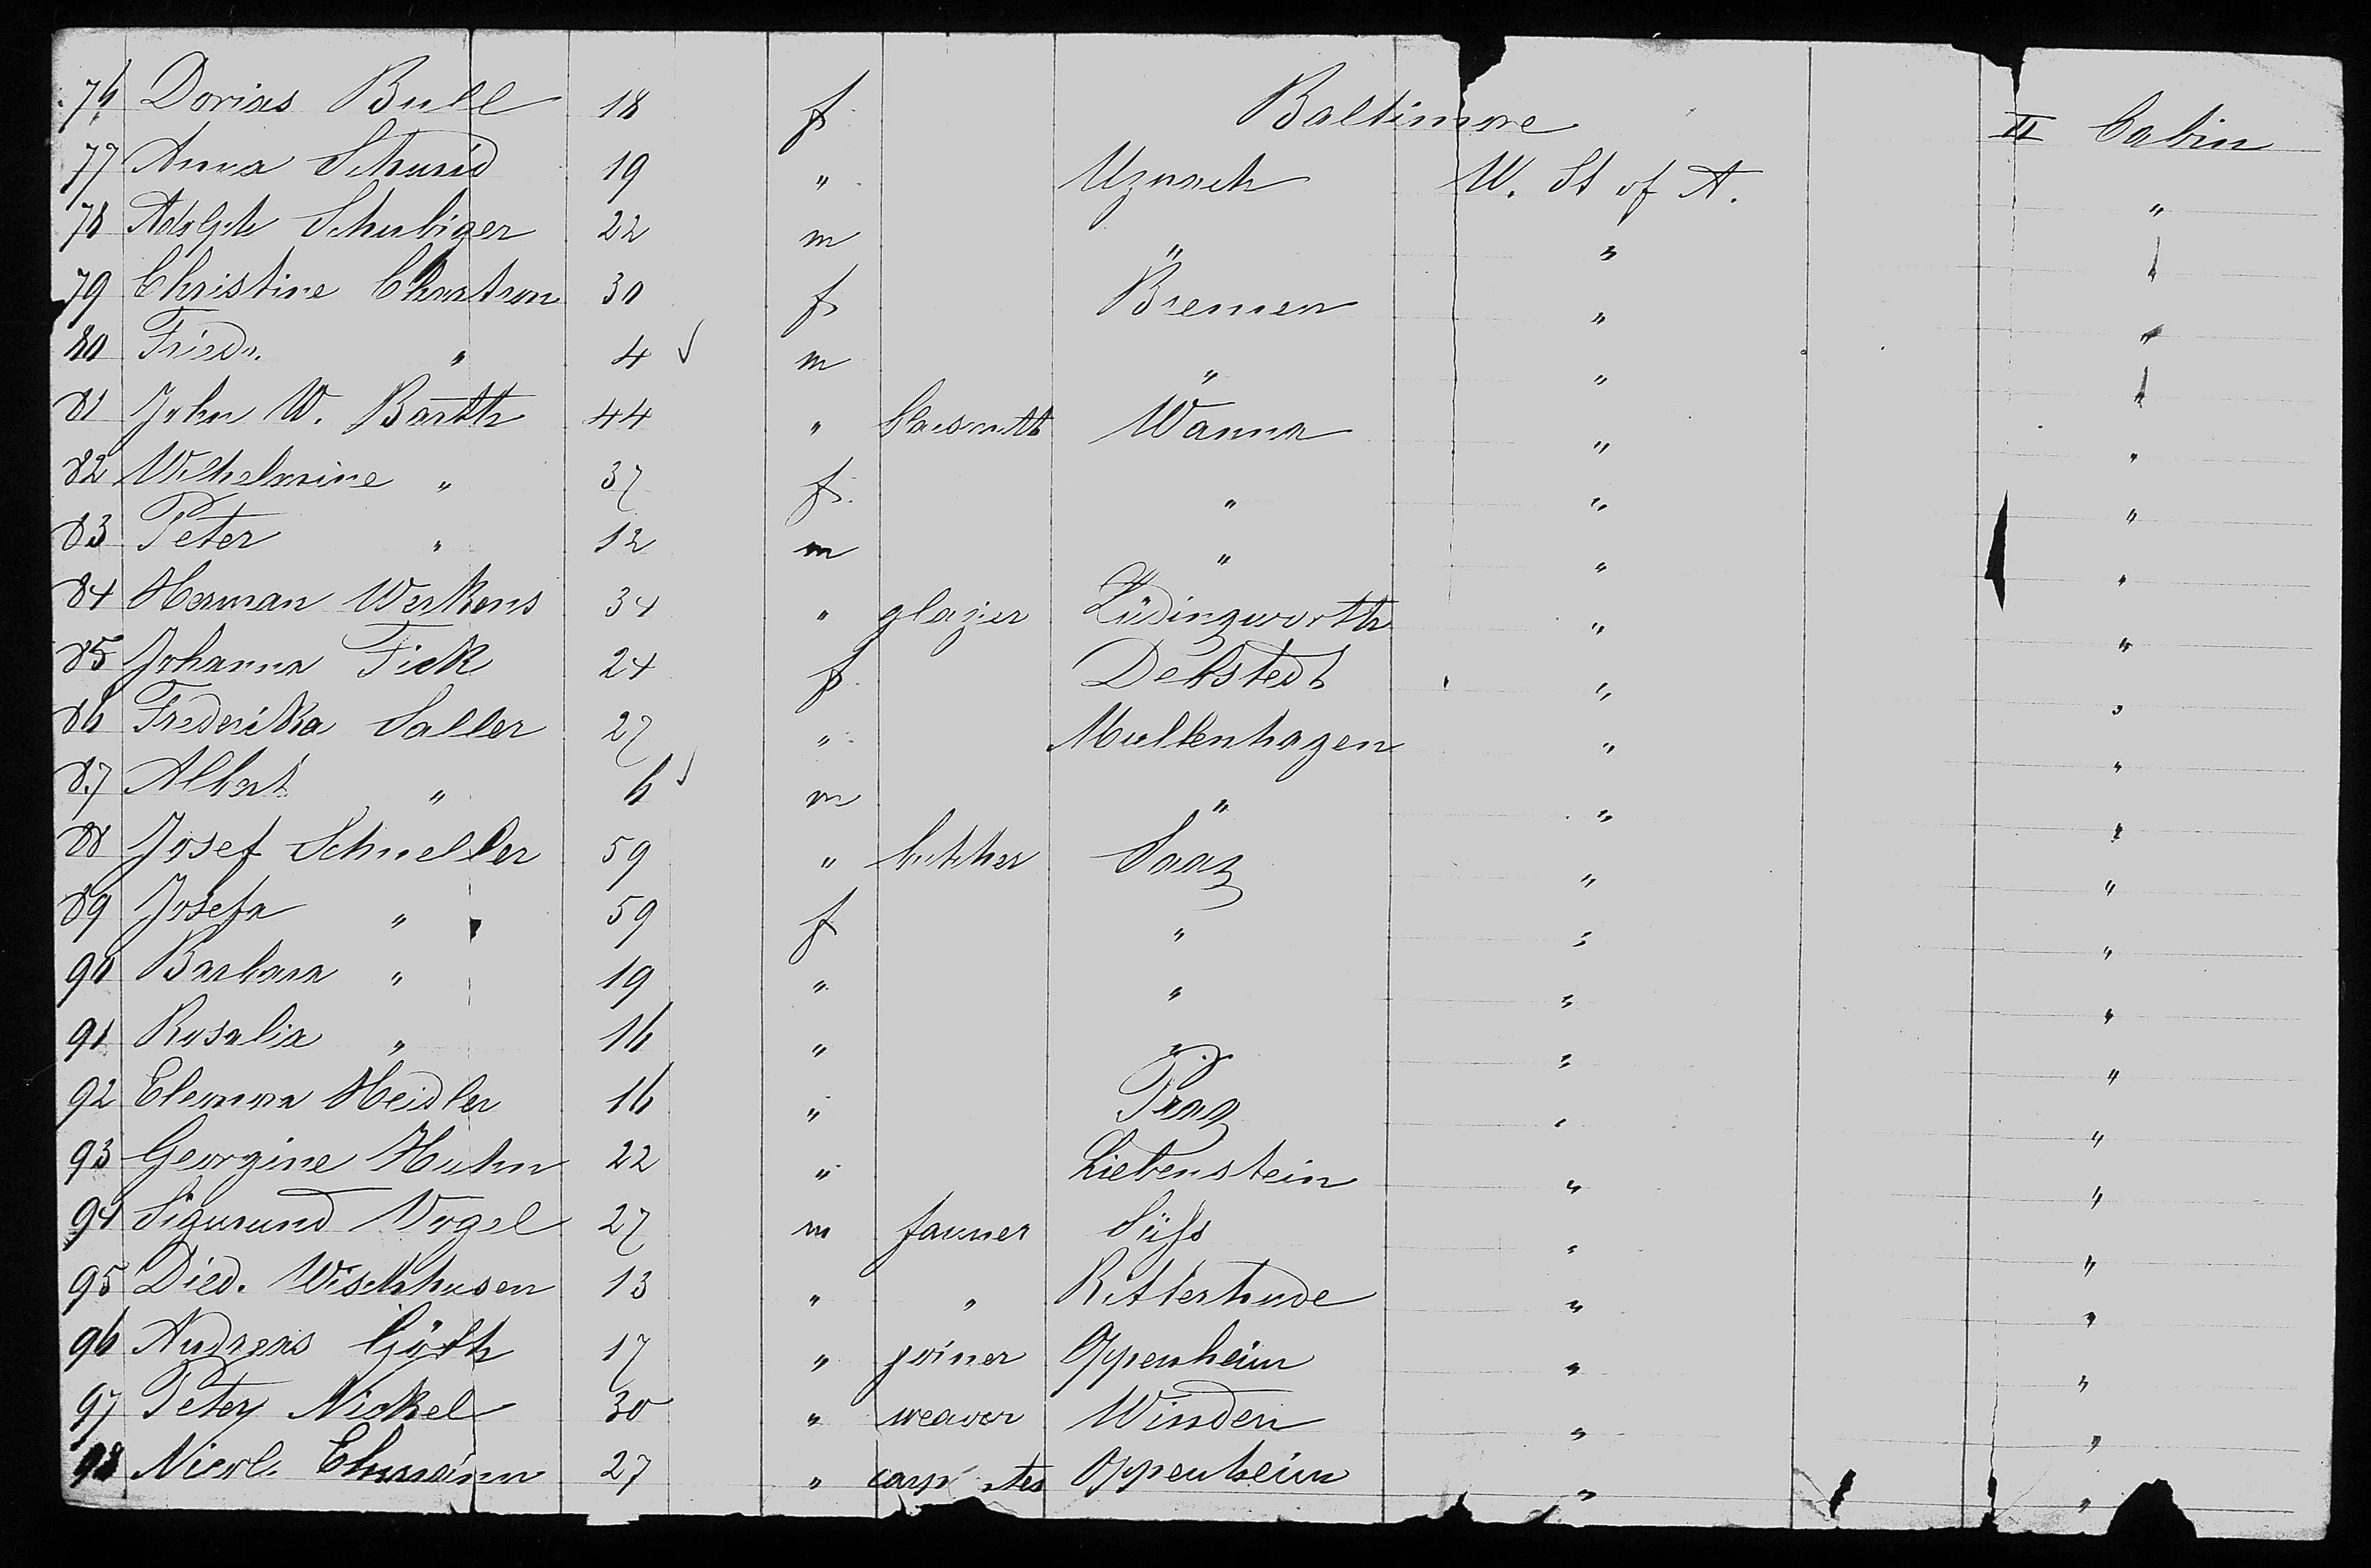 76 Dorias Bull 18 f Baltimore II Cabin
77 Anna Schmid 19 " Uznach U. St of A. "
78 Adolph Schubiger 22 m " " "
79 Christine Chartron 30 f Bremen " "
80 Friedr. " 4 ✓ m " " "
81 John W. Barth 44 " Wanna " "
82 Wilhelmine " 37 f. " " "
83 Peter " 12 m " " "
84 Herman Werkens 34 " glazier Lüdingworth " "
85 Johanna Fick 24 f. Debstedt " "
86 Frederika Saller 27 " Mullenhagen " "
87 Albert " 6 ✓ m " " "
88 Josef Schneller 59 " butcher Saaz " "
89 Josefa " 59 f " " "
90 Barbara " 19 " " " "
91 Rosalia " 16 " " " "
92 Heidler 16 " Prag " "
93 Georgine Huhn 22 " Liebenstein " "
94 Sigmund Vogel 27 m farmer Süß " "
95 Died. Wischhusen 13 " " Ritterhude " "
96 Andreas Göth 17 " joiner Oppenheim " "
97 Peter Nickel 30 " weaver Winden " "
98 Nicol. Ehmann 27 " carp ter Oppenheim " "